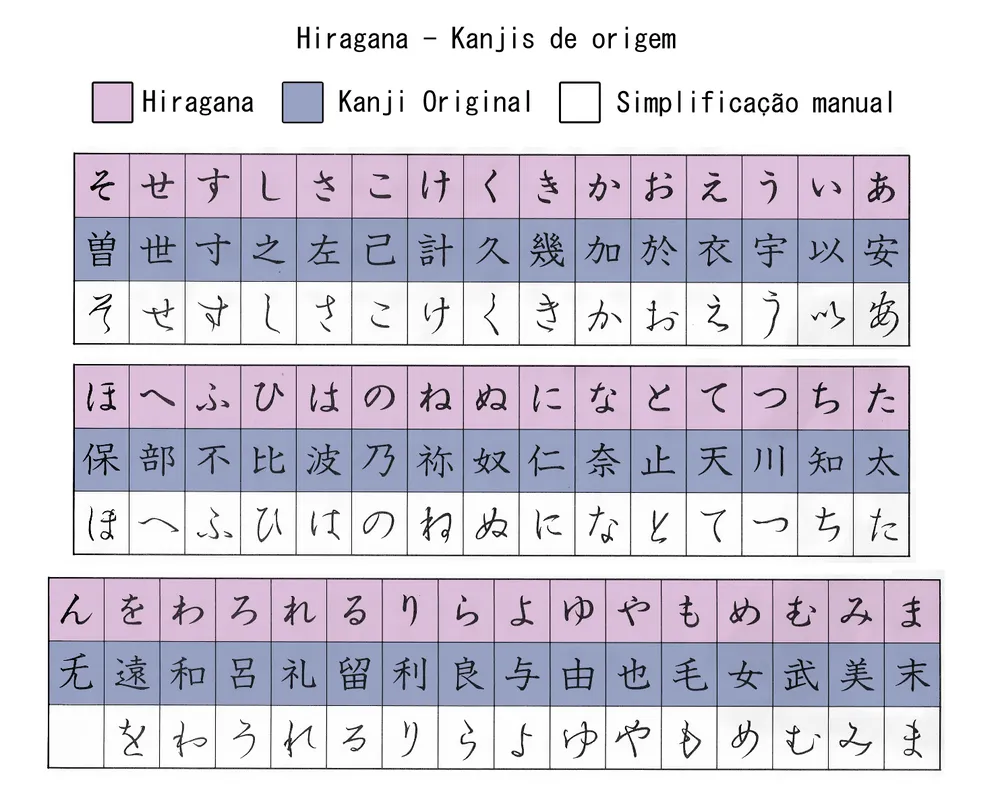 Hiragana - Kanjis de origem
Hiragana Kanji Original Simplificação manual
そ せ す し さ こ け く き か お え う い あ
曽 世 寸 之 左 己 計 久 幾 加 於 衣 宇 以 安
そ せ す し さ こ け く き か お え う い あ
ほ へ ふ ひ は の ね ぬ に な と て つ ち た
保 部 不 比 波 乃 祢 奴 仁 奈 止 天 川 知 太
ほ へ ふ ひ は の ね ぬ に な と て つ ち た
ん を わ ろ れ る り ら よ ゆ や も め む み ま
无 遠 和 呂 礼 留 利 良 与 由 也 毛 女 武 美 末
を わ ろ れ る り ら よ ゆ や も め む み ま